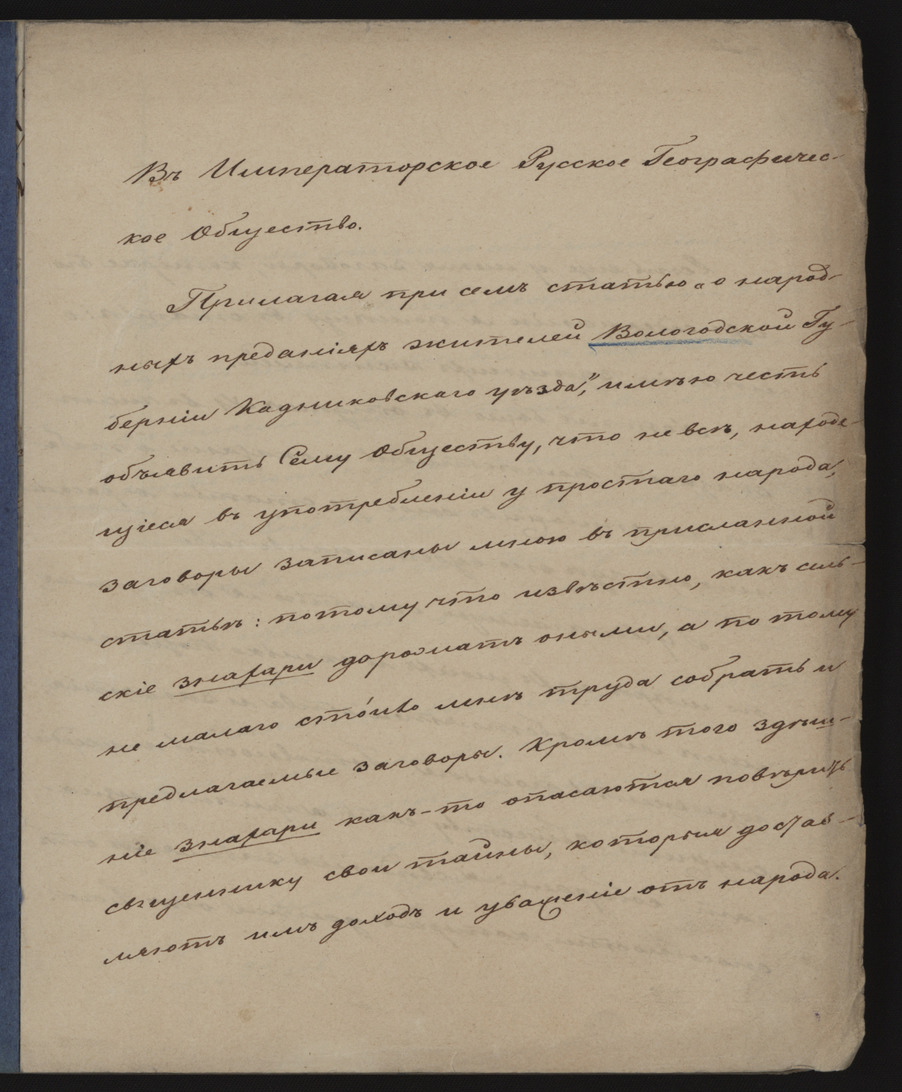 Въ Императорское Русское Географичес-
кое Общество.
Прилагая при семъ статью „о народ-
ныхъ преданіяхъ жителей Вологодской Гу-
берніи Кадниковскаго уѣзда,“ имѣю честь
объявить Сему Обществу, что не всѣ, находя-
щіеся въ употребленіи у простаго народа,
заговоры записаны мною въ присланной
статьѣ: потому что извѣстно, какъ сель-
скіе знахари дорожатъ оными, а по тому
не малаго сто́ило мнѣ труда собрать и
предлагаемые заговоры. Кромѣ того здѣш-
ніе знахари какъ-то опасаются повѣрить
священнику свои тайны, которыя достав-
ляютъ имъ доходъ и уваженіе отъ народа.